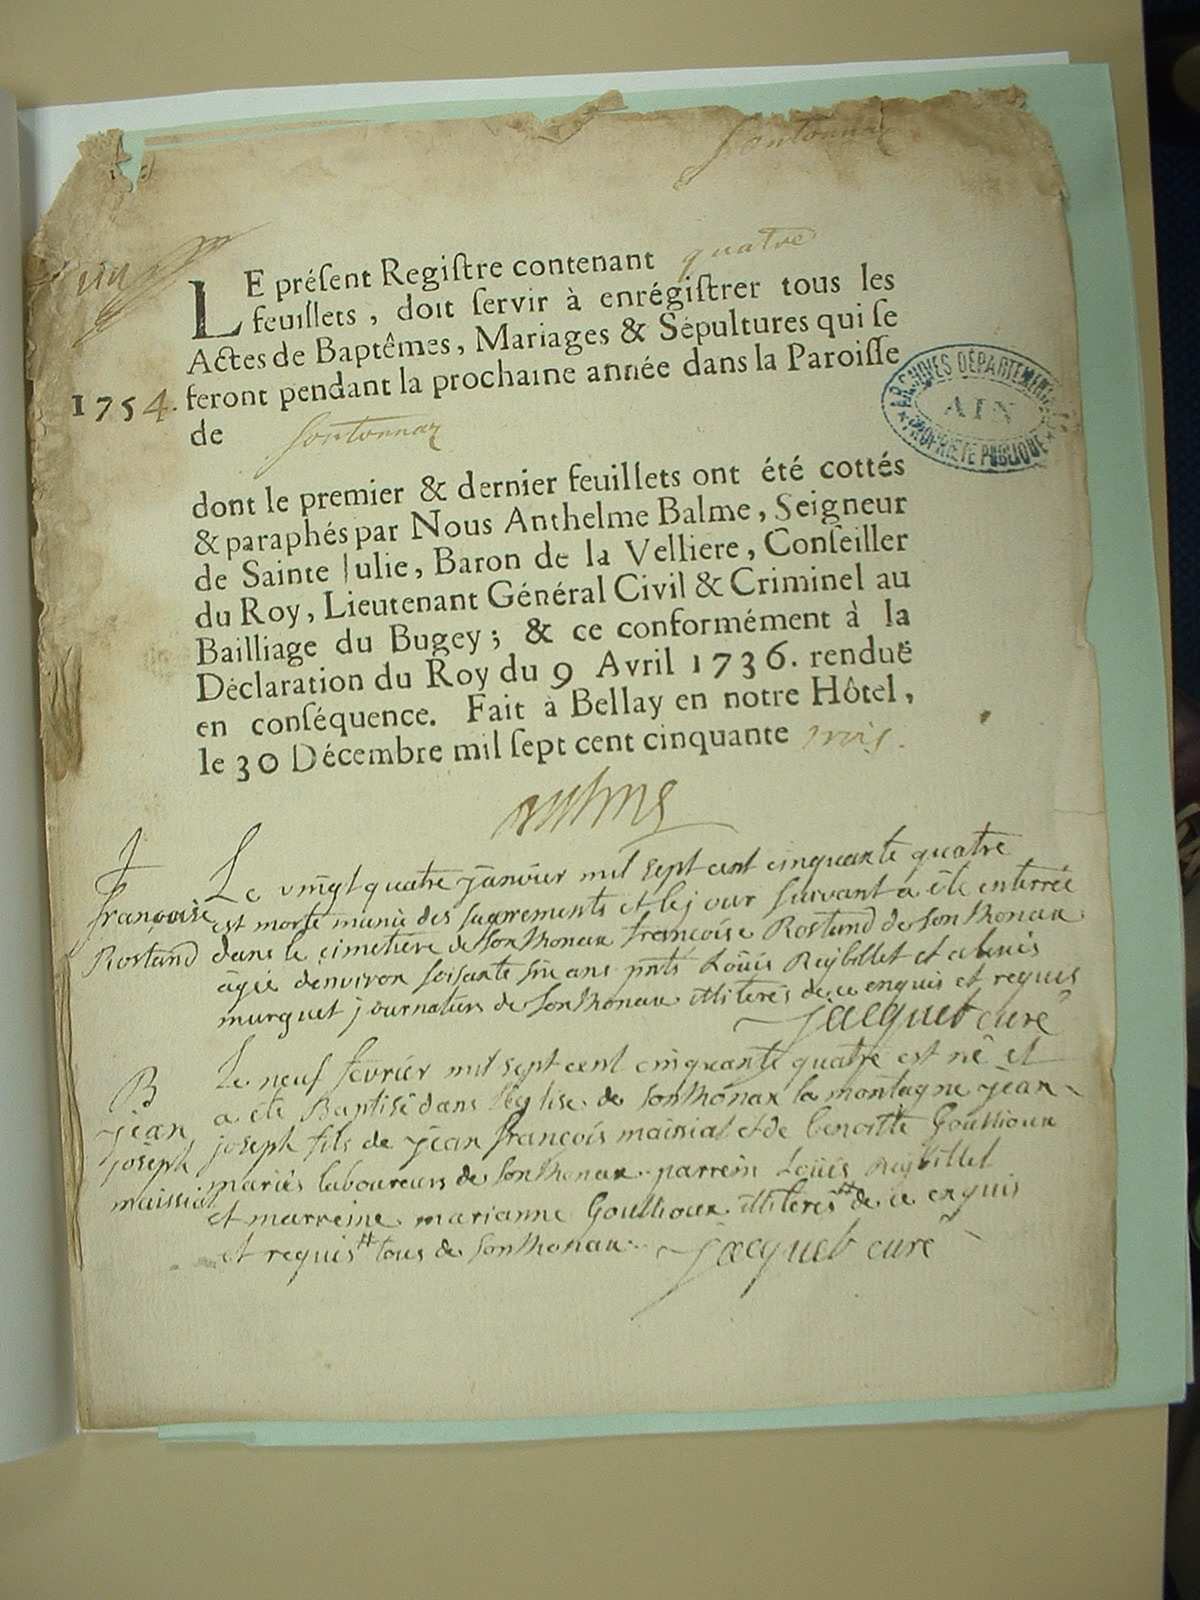 Sontonnax
un
LE présent Registre contenant quatre
feuillets, doit servir à enrégistrer tous les
Actes de Baptêmes, Mariages & Sépultures qui se
1754. feront pendant la prochaine année dans la Paroisse
de Sontonnax
ARCHIVES DÉPARTEMENTALES
AIN
PROPRIÉTÉ PUBLIQUE
dont le premier & dernier feuillets ont été cottés
& paraphés par Nous Anthelme Balme, Seigneur
de Sainte Julie, Baron de la Velliere, Conseiller
du Roy, Lieutenant Général Civil & Criminel au
Bailliage du Bugey; & ce conformément à la
Déclaration du Roy du 9 Avril 1736. renduë
en conséquence. Fait à Bellay en notre Hôtel,
le 30 Décembre mil sept cent cinquante trois.
françoise
Rostand
Le vingt quatre janvier mil sept cent cinquante quatre
est morte munie des sacrements et le jour suivant a été enterrée
dans le cimetière de Sonthonax françoise Rostand de Sonthonax
agée denviron soisante six ans pnts Loüis Reybillet et
murguet journaliers de Sonthonax illiterés de ce enquis et requis
jacquet curé
B
jean
joseph
maissiat
Le neuf fevrier mil sept cent cinquante quatre est né et
a été Baptisé dans l'église de Sonthonax la montagne jean
joseph fils de jean françois maissiat et de benoitte Goullioux
mariés laboureurs de Sonthonax parrein Loüis Reybillet
et marreine marianne Goullioux illiterés de ce enquis
et requis tous de Sonthonax jacquet curé